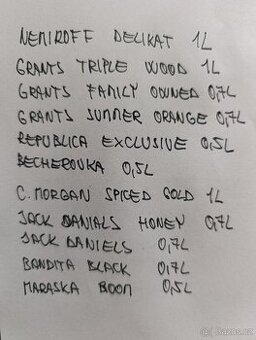 NEMIROFF DELIKAT 1L
GRANTS TRIPLE WOOD 1L
GRANTS FAMILY OWNED 0,7L
GRANTS SUMMER ORANGE 0,7L
REPUBLICA EXCLUSIVE 0,5L
BECHEROVKA 0,5L
C. MORGAN SPICED GOLD 1L
JACK DANIALS HONEY 0,7L
JACK DANIELS 0,7L
BANDITA BLACK 0,7L
MARASKA BOOM 0,5L